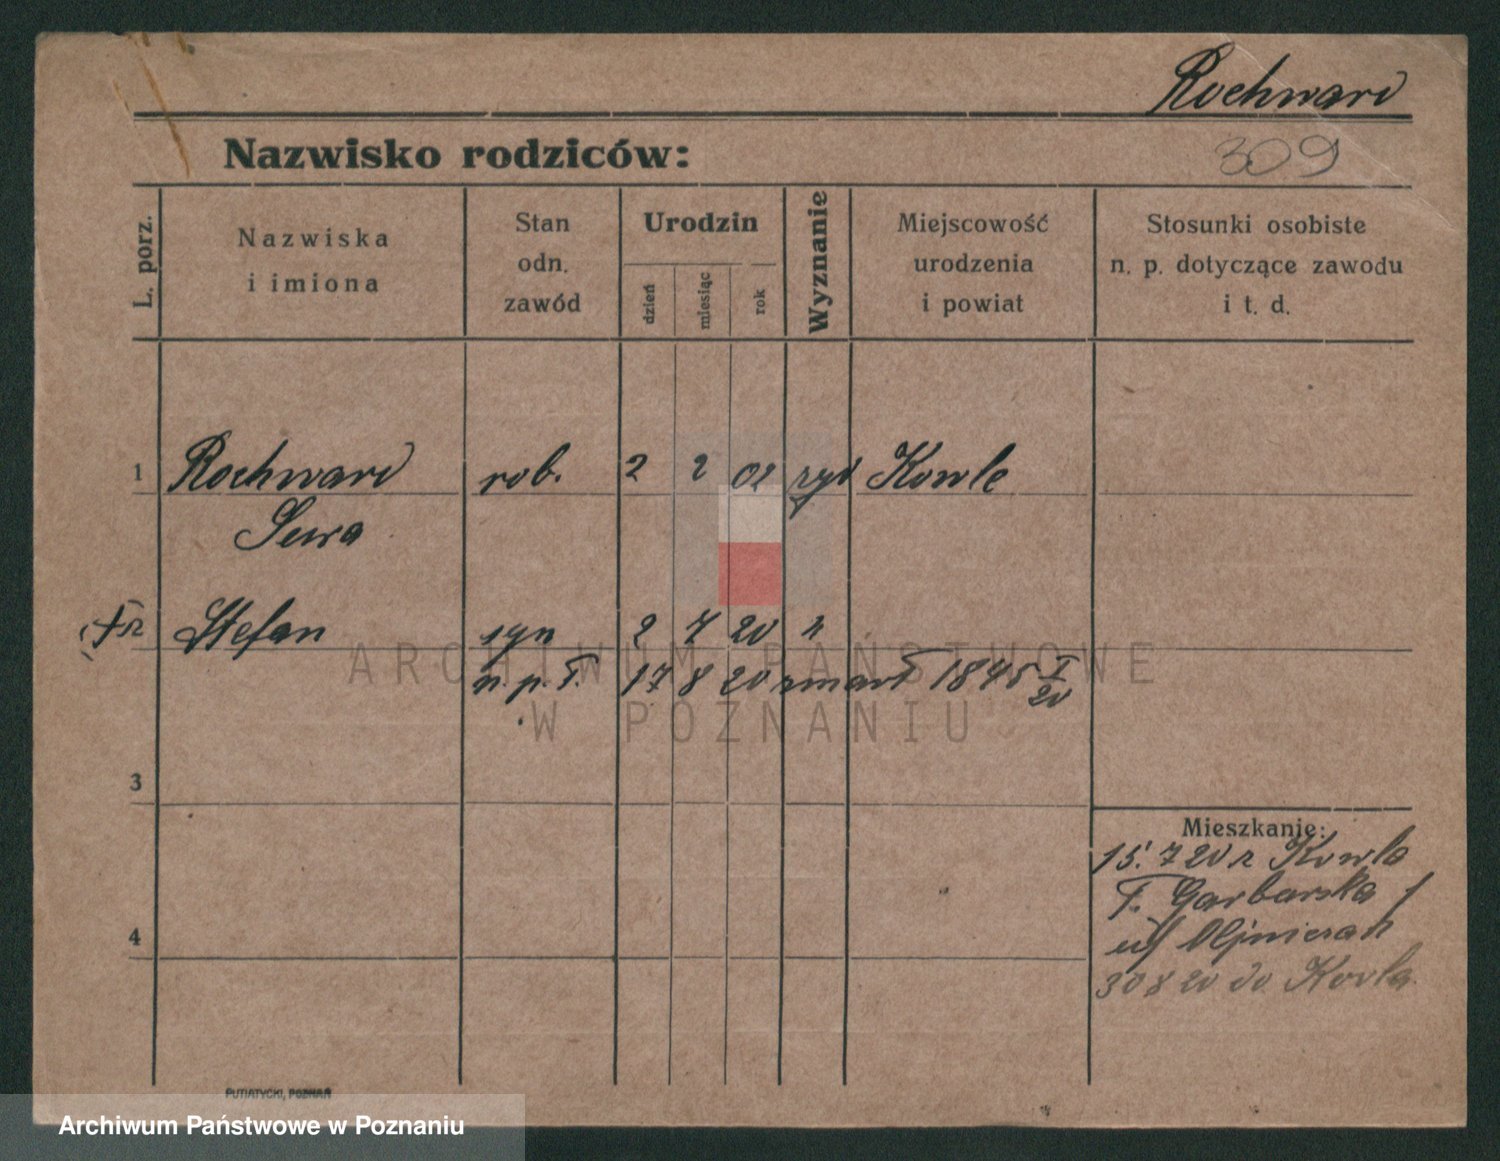 Rochward
309
Nazwisko rodziców:
L. porz.
Nazwiska
i imiona
Stan
odn.
zawód
Urodzin
dzień
miesiąc
rok
Wyznanie
Miejscowość
urodzenia
i powiat
Stosunki osobiste
n. p. dotyczące zawodu
i t. d.
1 Rochward rob. 2 2 02 żyd Kowle
Sura
Stefan syn 2 7 20 "
n. p. T. 17 8 20 zmarł 1845 I/20
3
4
Mieszkanie:
15. 7 20 z Kowla
T. Garbarska
30 8 20 do Kowla.
PUTIATYCKI, POZNAŃ
ARCHIWUM PAŃSTWOWE
W POZNANIU
Archiwum Państwowe w Poznaniu